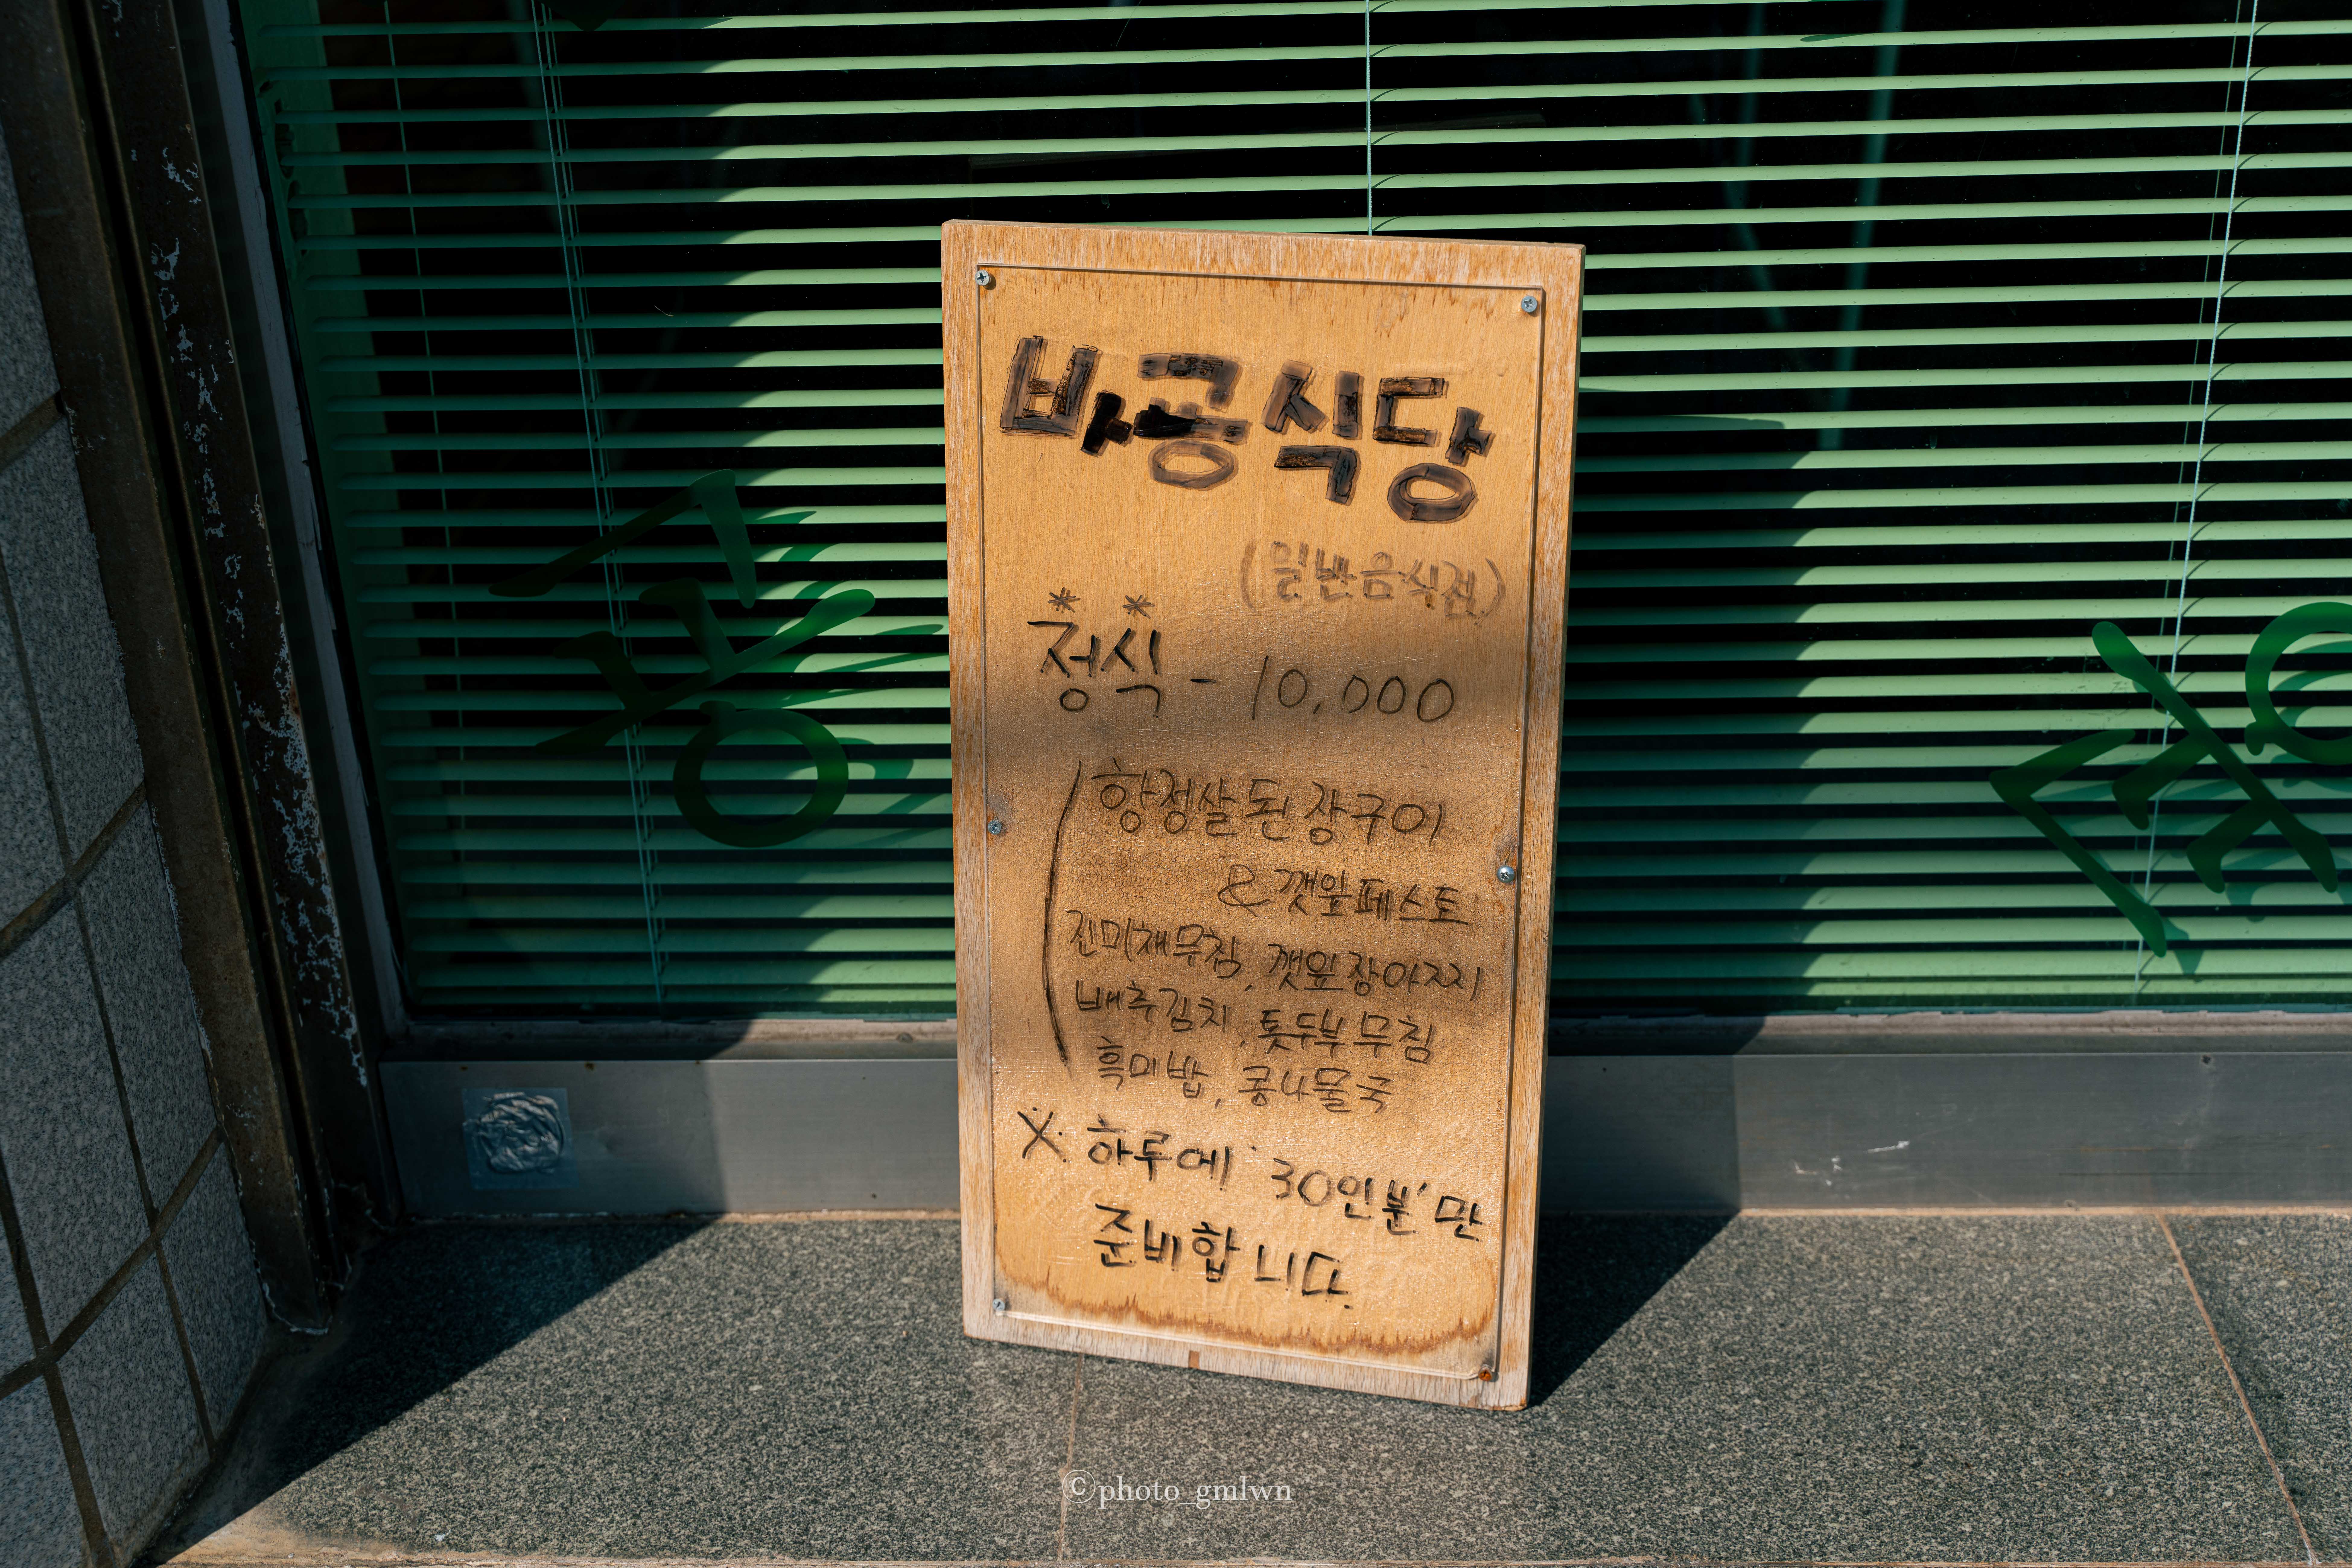 바공식당
(일반음식점)
정식 - 10,000
항정살된장구이
& 깻잎페스토
진미채무침, 깻잎장아찌
배추김치, 톳두부무침
흑미밥, 콩나물국
※ 하루에 '30인분'만
준비합니다.
©photo_gmlwn